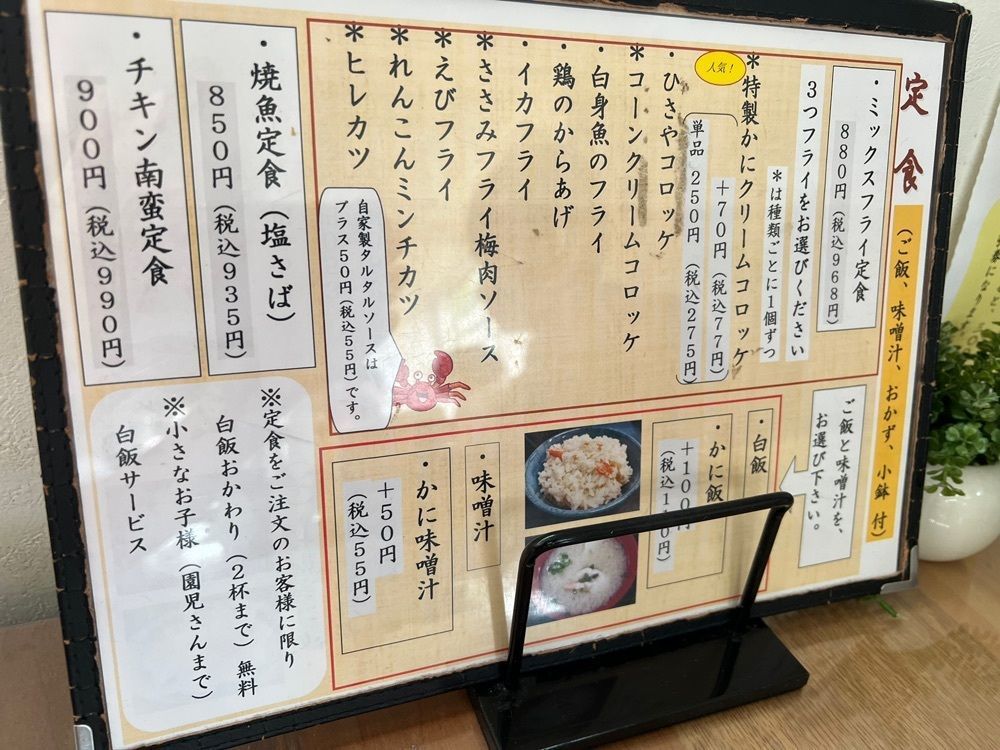 定食
(ご飯、味噌汁、おかず、小鉢 付)
・ミックスフライ定食
880円(税込968円)
3つフライをお選びください
*は種類ごとに1個ずつ
人気!
*特製かにクリームコロッケ
+70円(税込77円)
単品 250円(税込275円)
・ひさやコロッケ
*コーンクリームコロッケ
・白身魚のフライ
・鶏のからあげ
・イカフライ
*ささみフライ梅肉ソース
*えびフライ
*れんこんミンチカツ
*ヒレカツ
自家製タルタルソースは
プラス50円(税込55円)です。
・焼魚定食(塩さば)
850円(税込935円)
・チキン南蛮定食
900円(税込990円)
ご飯と味噌汁を、
お選び下さい。
・白飯
・かに飯
+100円
(税込110円)
・味噌汁
・かに味噌汁
+50円
(税込55円)
※定食をご注文のお客様に限り
白飯おかわり(2杯まで)無料
※小さなお子様(園児さんまで)
白飯サービス